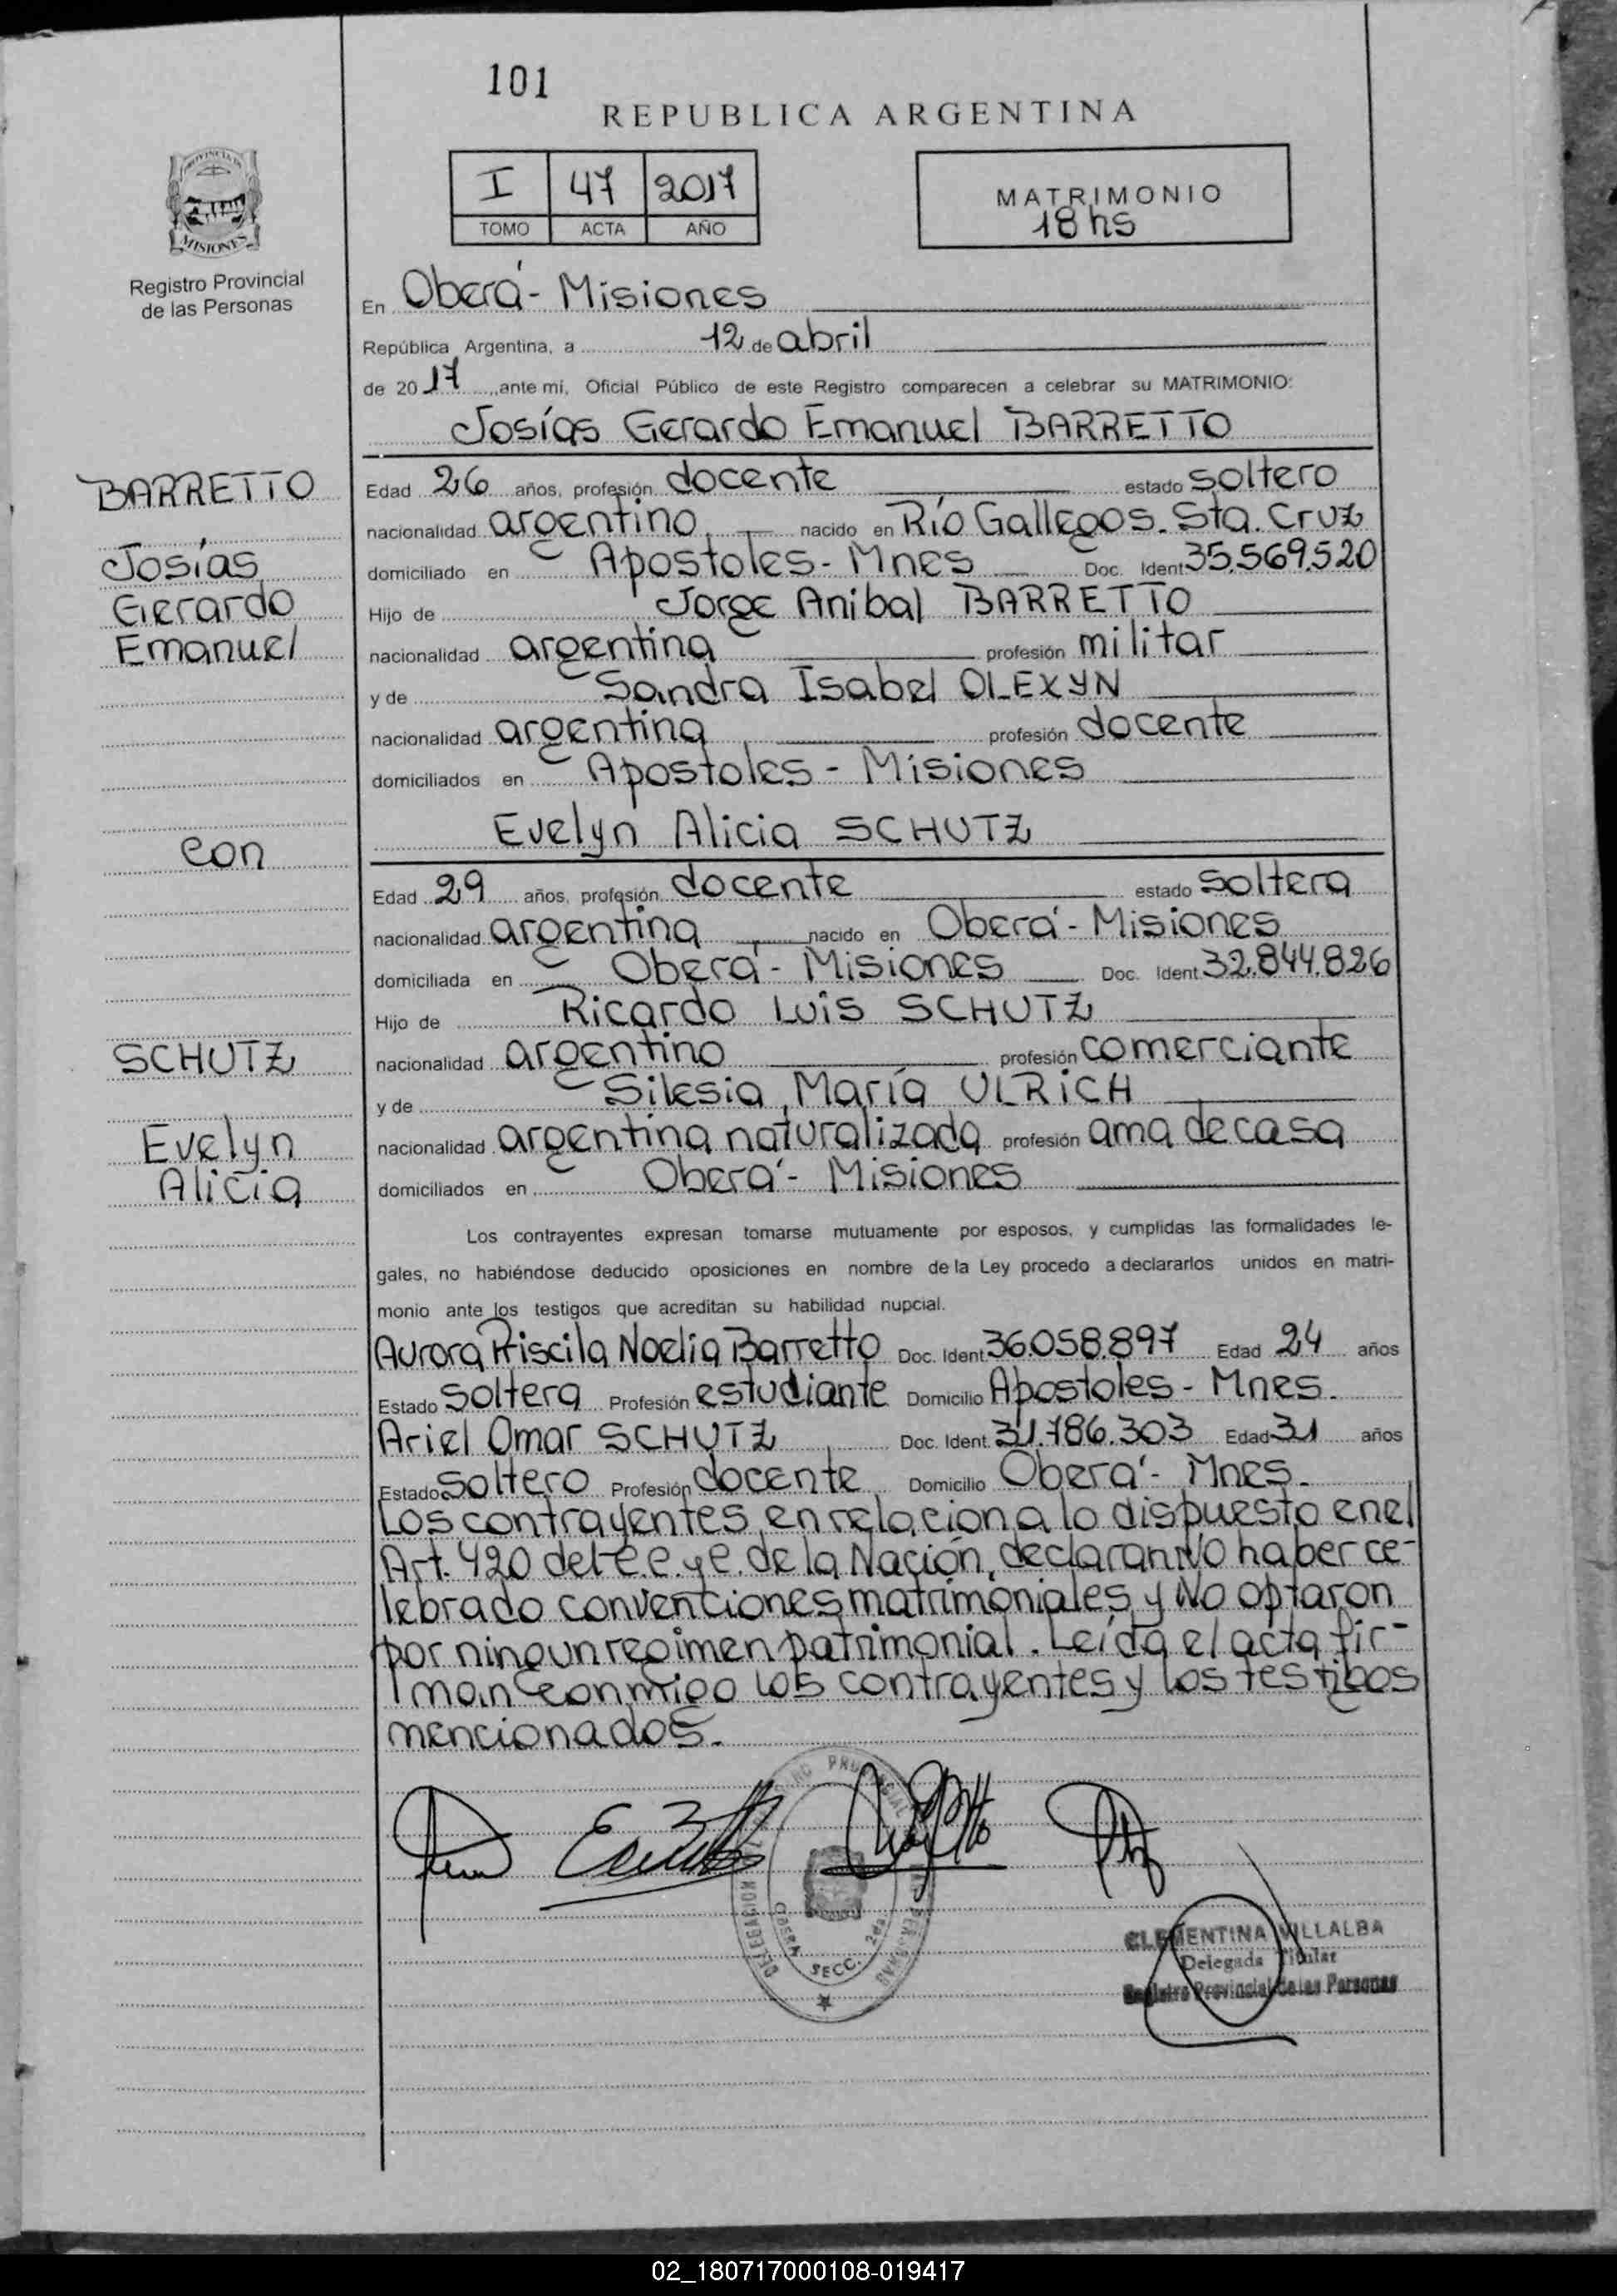 101
REPUBLICA ARGENTINA
I 47 2017
TOMO ACTA AÑO
MATRIMONIO
18 hs
PROVINCIA DE
MISIONES
Registro Provincial
de las Personas
En Oberá - Misiones
República Argentina, a 12 de abril
de 2017, ante mí, Oficial Público de este Registro comparecen a celebrar su MATRIMONIO:
Josías Gerardo Emanuel BARRETTO
BARRETTO
Josías
Gerardo
Emanuel
con
SCHUTZ
Evelyn
Alicia
Edad 26 años, profesión docente estado soltero
nacionalidad argentino nacido en Río Gallegos. Sta. Cruz
domiciliado en Apostoles - Mnes Doc. Ident 35.569.520
Hijo de Jorge Anibal BARRETTO
nacionalidad argentina profesión militar
y de Sandra Isabel OLEXYN
nacionalidad argentina profesión docente
domiciliados en Apostoles - Misiones
Evelyn Alicia SCHUTZ
Edad 29 años, profesión docente estado soltera
nacionalidad argentina nacido en Oberá - Misiones
domiciliada en Oberá - Misiones Doc. Ident 32.844.826
Hijo de Ricardo Luis SCHUTZ
nacionalidad argentino profesión comerciante
y de Silesia María ULRICH
nacionalidad argentina naturalizada profesión ama de casa
domiciliados en Oberá - Misiones
Los contrayentes expresan tomarse mutuamente por esposos, y cumplidas las formalidades le-
gales, no habiéndose deducido oposiciones en nombre de la Ley procedo a declararlos unidos en matri-
monio ante los testigos que acreditan su habilidad nupcial.
Aurora Priscila Noelia Barretto Doc. Ident. 36.058.897 Edad 24 años
Estado soltera Profesión estudiante Domicilio Apostoles - Mnes.
Ariel Omar SCHUTZ Doc. Ident. 31.786.303 Edad 31 años
Estado soltero Profesión docente Domicilio Oberá - Mnes.
Los contrayentes en relacion a lo dispuesto en el
Art. 420 del C.C. y C. de la Nación, declaran NO haber ce-
lebrado convenciones matrimoniales y NO optaron
por ningun regimen patrimonial. Leída el acta fir-
man conmigo los contrayentes y los testigos
mencionados.
SECC. 2da
CLEMENTINA VILLALBA
Delegada Titular
Registro Provincial de las Personas
02_180717000108-019417